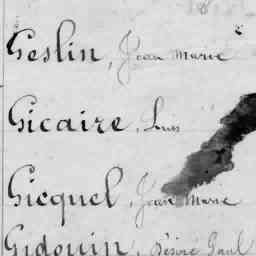 Geslin, Jean Marie
Gicaire, Luis
Gicquel, Jean Marie
Gidouin, Désiré Paul